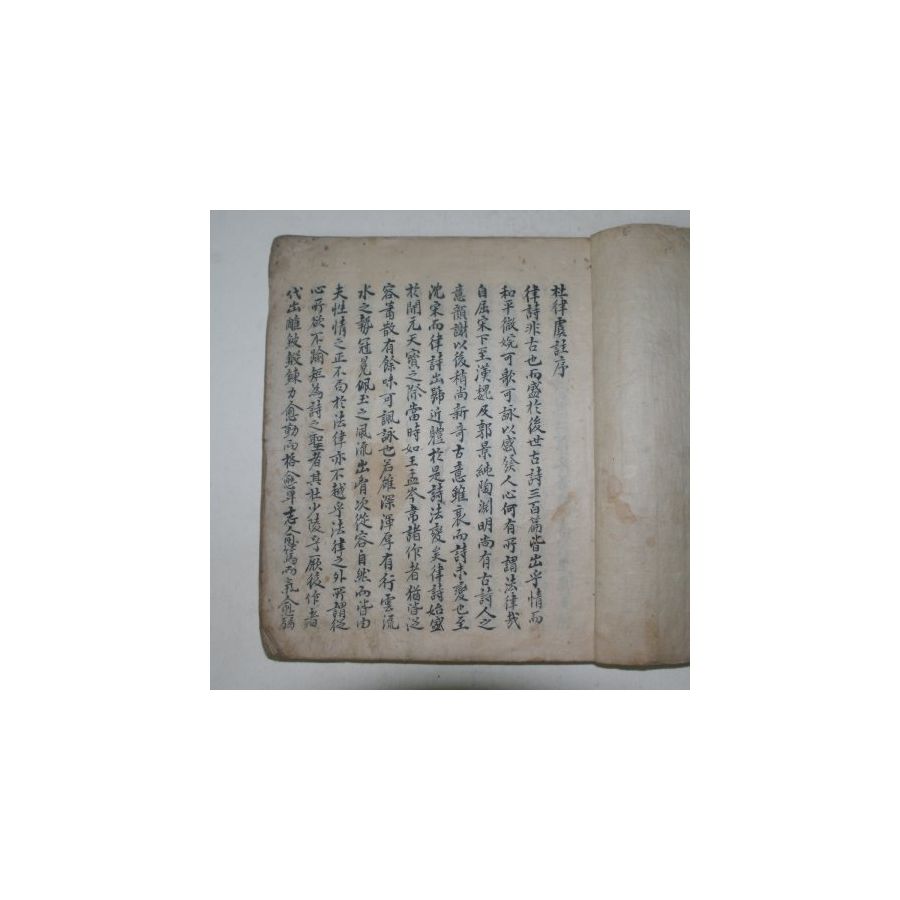 杜律虞註序
律詩非古也而盛於後世古詩三百篇皆出乎情而
和平微婉可歌可詠以感發人心何有所謂法律哉
自屈宋下至漢魏及郭景純陶淵明尚有古詩人之
意顏謝以後稍尚新奇古意雖衰而詩未變也至
沈宋而律詩出號近體於是詩法變矣律詩始盛
於開元天寶之際當時如王孟岑韋諸作者猶皆從
容蕭散有餘味可諷詠也若雄深渾厚有行雲流
水之勢冠冕佩玉之風流出胷次從容自然而皆由
夫性情之正不局於法律亦不越乎法律之外所謂從
心所欲不踰矩為詩之聖者其杜少陵乎厥後作者
代出雕鎪鍛鍊力愈勤而格愈卑志愈篤而氣愈弱